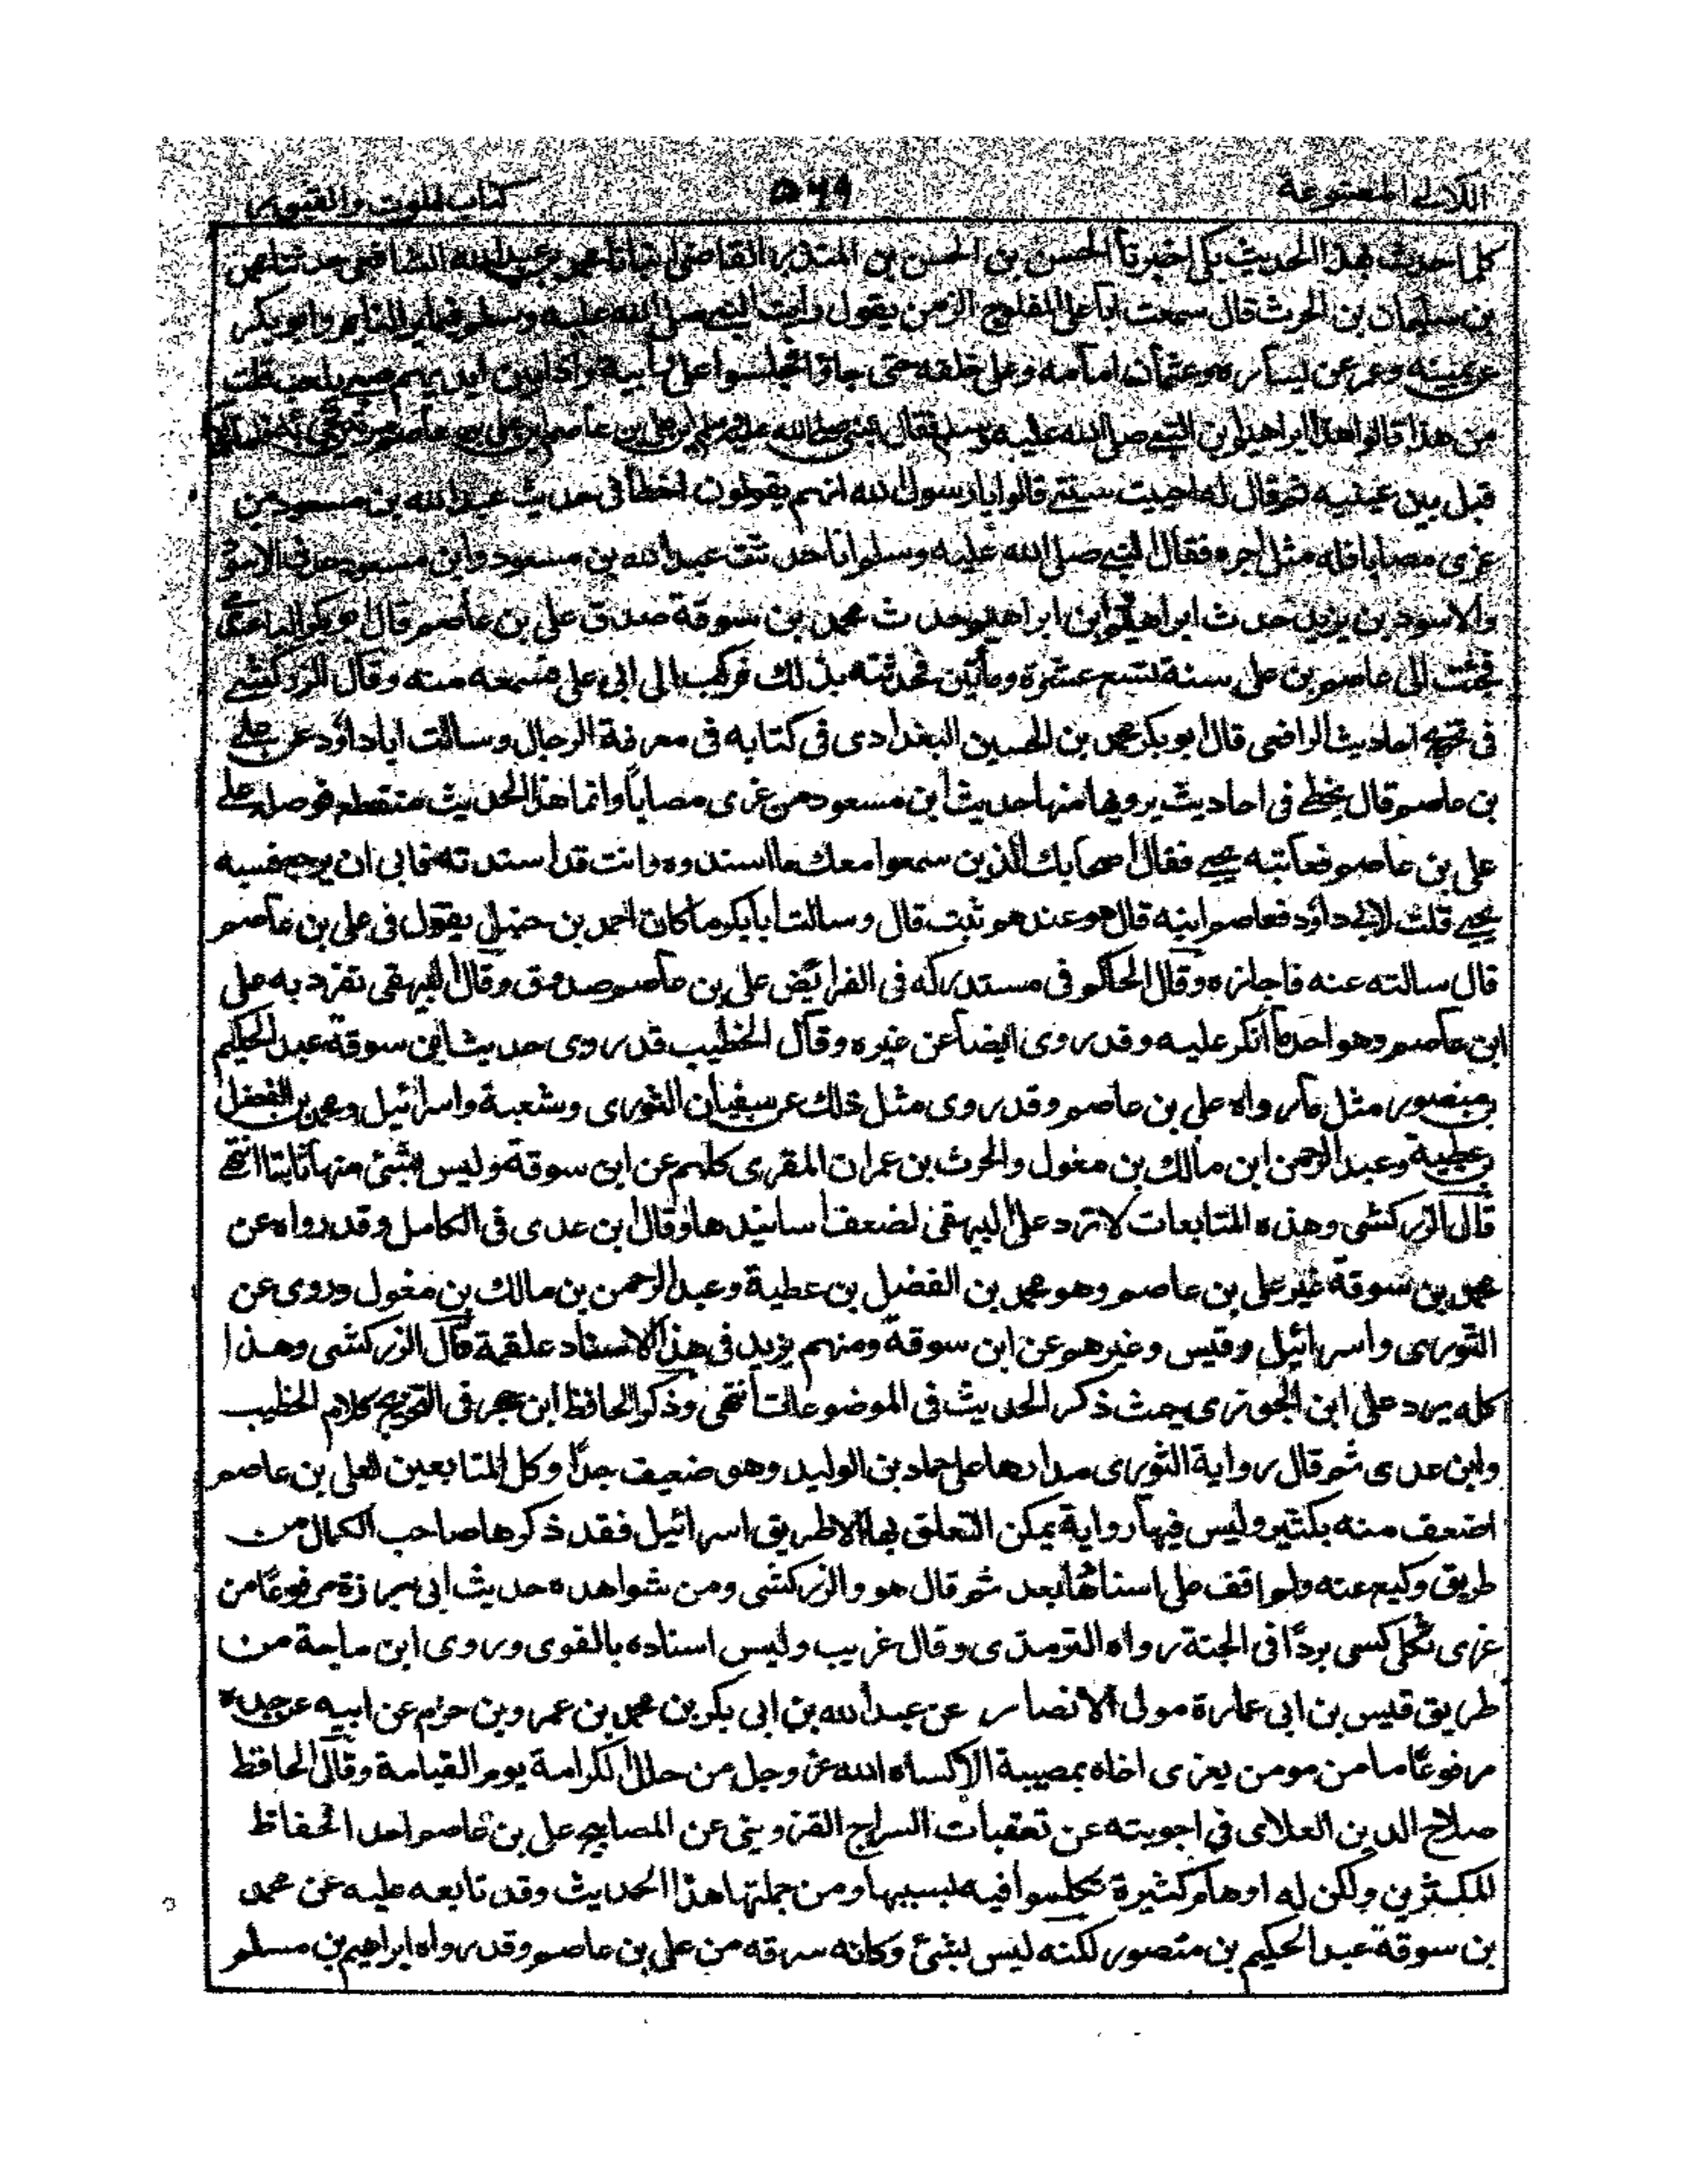 كتاب الموت والقبور ٥٦٩ اللآلي المصنوعة
كلما حدث بهذا الحديث بكى اخبرنا الحسن بن الحسن بن المنذر القاضي انبأنا محمد بن عبدالله الشافعي حدثنا
بن سليمان بن الحرث قال سمعت ابا علي المفلوج الزمن يقول رايت النبي صلى الله عليه وسلم فيما يرى النائم وابو بكر
عن يمينه وعمر عن يساره وعثمان امامه وعلي خلفه حتى جاؤا فجلسوا على رابية واذا بين ايديهم صبي يلعب قلت
من هذا قالوا هذا ابراهيم ابن النبي صلى الله عليه وسلم فقال النبي صلى الله عليه وسلم اين علي بن عاصم اين علي بن عاصم
قبل بين عينيه ثم قال له احييت سنتي قالوا يا رسول الله انهم يقولون اخطأ في حديث عبد الله بن مسعود من
عزى مصابا فله مثل اجره فقال النبي صلى الله عليه وسلم انا حدثت عبد الله بن مسعود وابن مسعود حدث الاسود
والاسود بن يزيد حدث ابراهيم وابن ابراهيم حدث محمد بن سوقة صدق علي بن عاصم قال ابو بكر الباغندي
فجئت الى عاصم بن علي سنة تسع عشرة ومأتين فحدثته بذلك فركب الى ابي علي فسمعه منه وقال الزركشي
في تخريج احاديث الرافعي قال ابو بكر محمد بن الحسين البغدادي في كتابه في معرفة الرجال وسالت ابا داؤد عن علي
بن عاصم قال يخطئ في احاديث يرويها منها حديث ابن مسعود من عزى مصابًا وانما هذا الحديث منقطع فوصله علي
علي بن عاصم فعاتبه يحيى فقال اصحابك الذين سمعوا معك ما اسندوه وانت قد اسندته فابى ان يرجع فسبه
يحيى قلت لابي داؤد فعاصم ابنه قال هو عندهم ثبت قال وسالت ابا بكر ما كان احمد بن حنبل يقول في علي بن عاصم
قال سالته عنه فاجازه وقال الحاكم في مستدركه في الفرائض علي بن عاصم صدوق وقال البيهقي تفرد به علي
ابن عاصم وهو احد ما انكر عليه وقد روى ايضاً عن غيره وقال الخطيب قد روى حديث ابن سوقة عبد الحكيم
بن منصور مثل ما رواه علي بن عاصم وقد روى مثل ذلك عن سفيان الثوري وشعبة واسرائيل ومحمد بن الفضل
بن عطية وعبد الرحمن ابن مالك بن مغول والحرث بن عمران المقري كلهم عن ابن سوقة وليس بشئ منها ثابتا انتهى
قال الزركشي وهذه المتابعات لا ترد على البيهقي لضعف اسانيدها وقال ابن عدى في الكامل وقد رواه عن
محمد بن سوقة غير علي بن عاصم وهو محمد بن الفضل بن عطية وعبد الرحمن بن مالك بن مغول وروى عن
الثوري واسرائيل وقيس وغيرهم عن ابن سوقة ومنهم يزيد في هذا الاسناد علقمة قال الزركشي وهذا
كله يرد على ابن الجوزي حيث ذكر الحديث في الموضوعات انتهى وذكر الحافظ ابن حجر في التخريج كلام الخطيب
وابن عدى ثم قال رواية الثوري مدارها على حماد بن الوليد وهو ضعيف جدًا وكل المتابعين لعلي بن عاصم
اضعف منه بكثير وليس فيها رواية يمكن التعلق بها الا طريق اسرائيل فقد ذكرها صاحب الكمال من
طريق وكيع عنه ولم اقف على اسنادها بعد ثم قال هو والزركشي ومن شواهده حديث ابي برزة مرفوعًا من
عزى ثكلى كسي بردًا في الجنة رواه الترمذي وقال غريب وليس اسناده بالقوى وروى ابن ماجة من
طريق قيس بن ابي عمارة مولى الانصار عن عبد الله بن ابي بكر بن محمد بن عمرو بن حزم عن ابيه عن جده
مرفوعًا ما من مومن يعزى اخاه بمصيبة الا كساه الله عز وجل من حلل الكرامة يوم القيامة وقال الحافظ
صلاح الدين العلائى في اجوبته عن تعقبات السراج القزويني عن المصابيح علي بن عاصم احد الحفاظ
المكثرين ولكن له اوهام كثيرة تكلموا فيه بسببها ومن جملتها هذا الحديث وقد تابعه عليه عن محمد
بن سوقة عبد الحكيم بن منصور لكنه ليس بشئ وكانه سرقه من علي بن عاصم وقد رواه ابراهيم بن مسلم